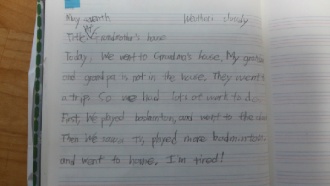 Weather: cloudy
Title: Grandmother's house
Today, We went to Grandma's house. My grandma
and grandpa is not in the house. They went
a trip. So we had lots of want to do.
First, We played badminton, and went to the
Then We TV, played more badminton.
and went to house. I'm tired!